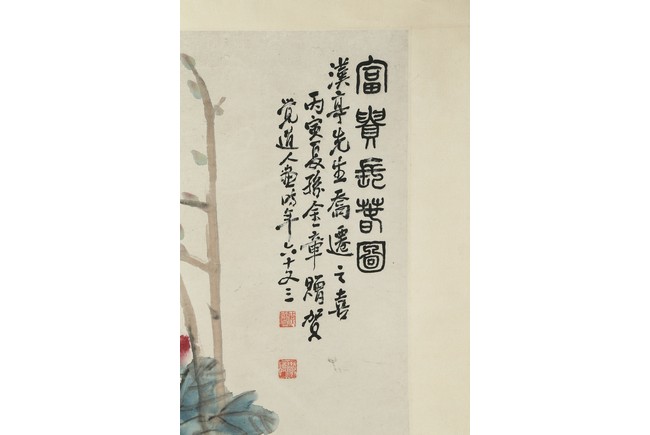 富貴長春圖
漢亭先生喬遷之喜
丙寅夏孫金章贈賀
覺道人畫時年六十又三